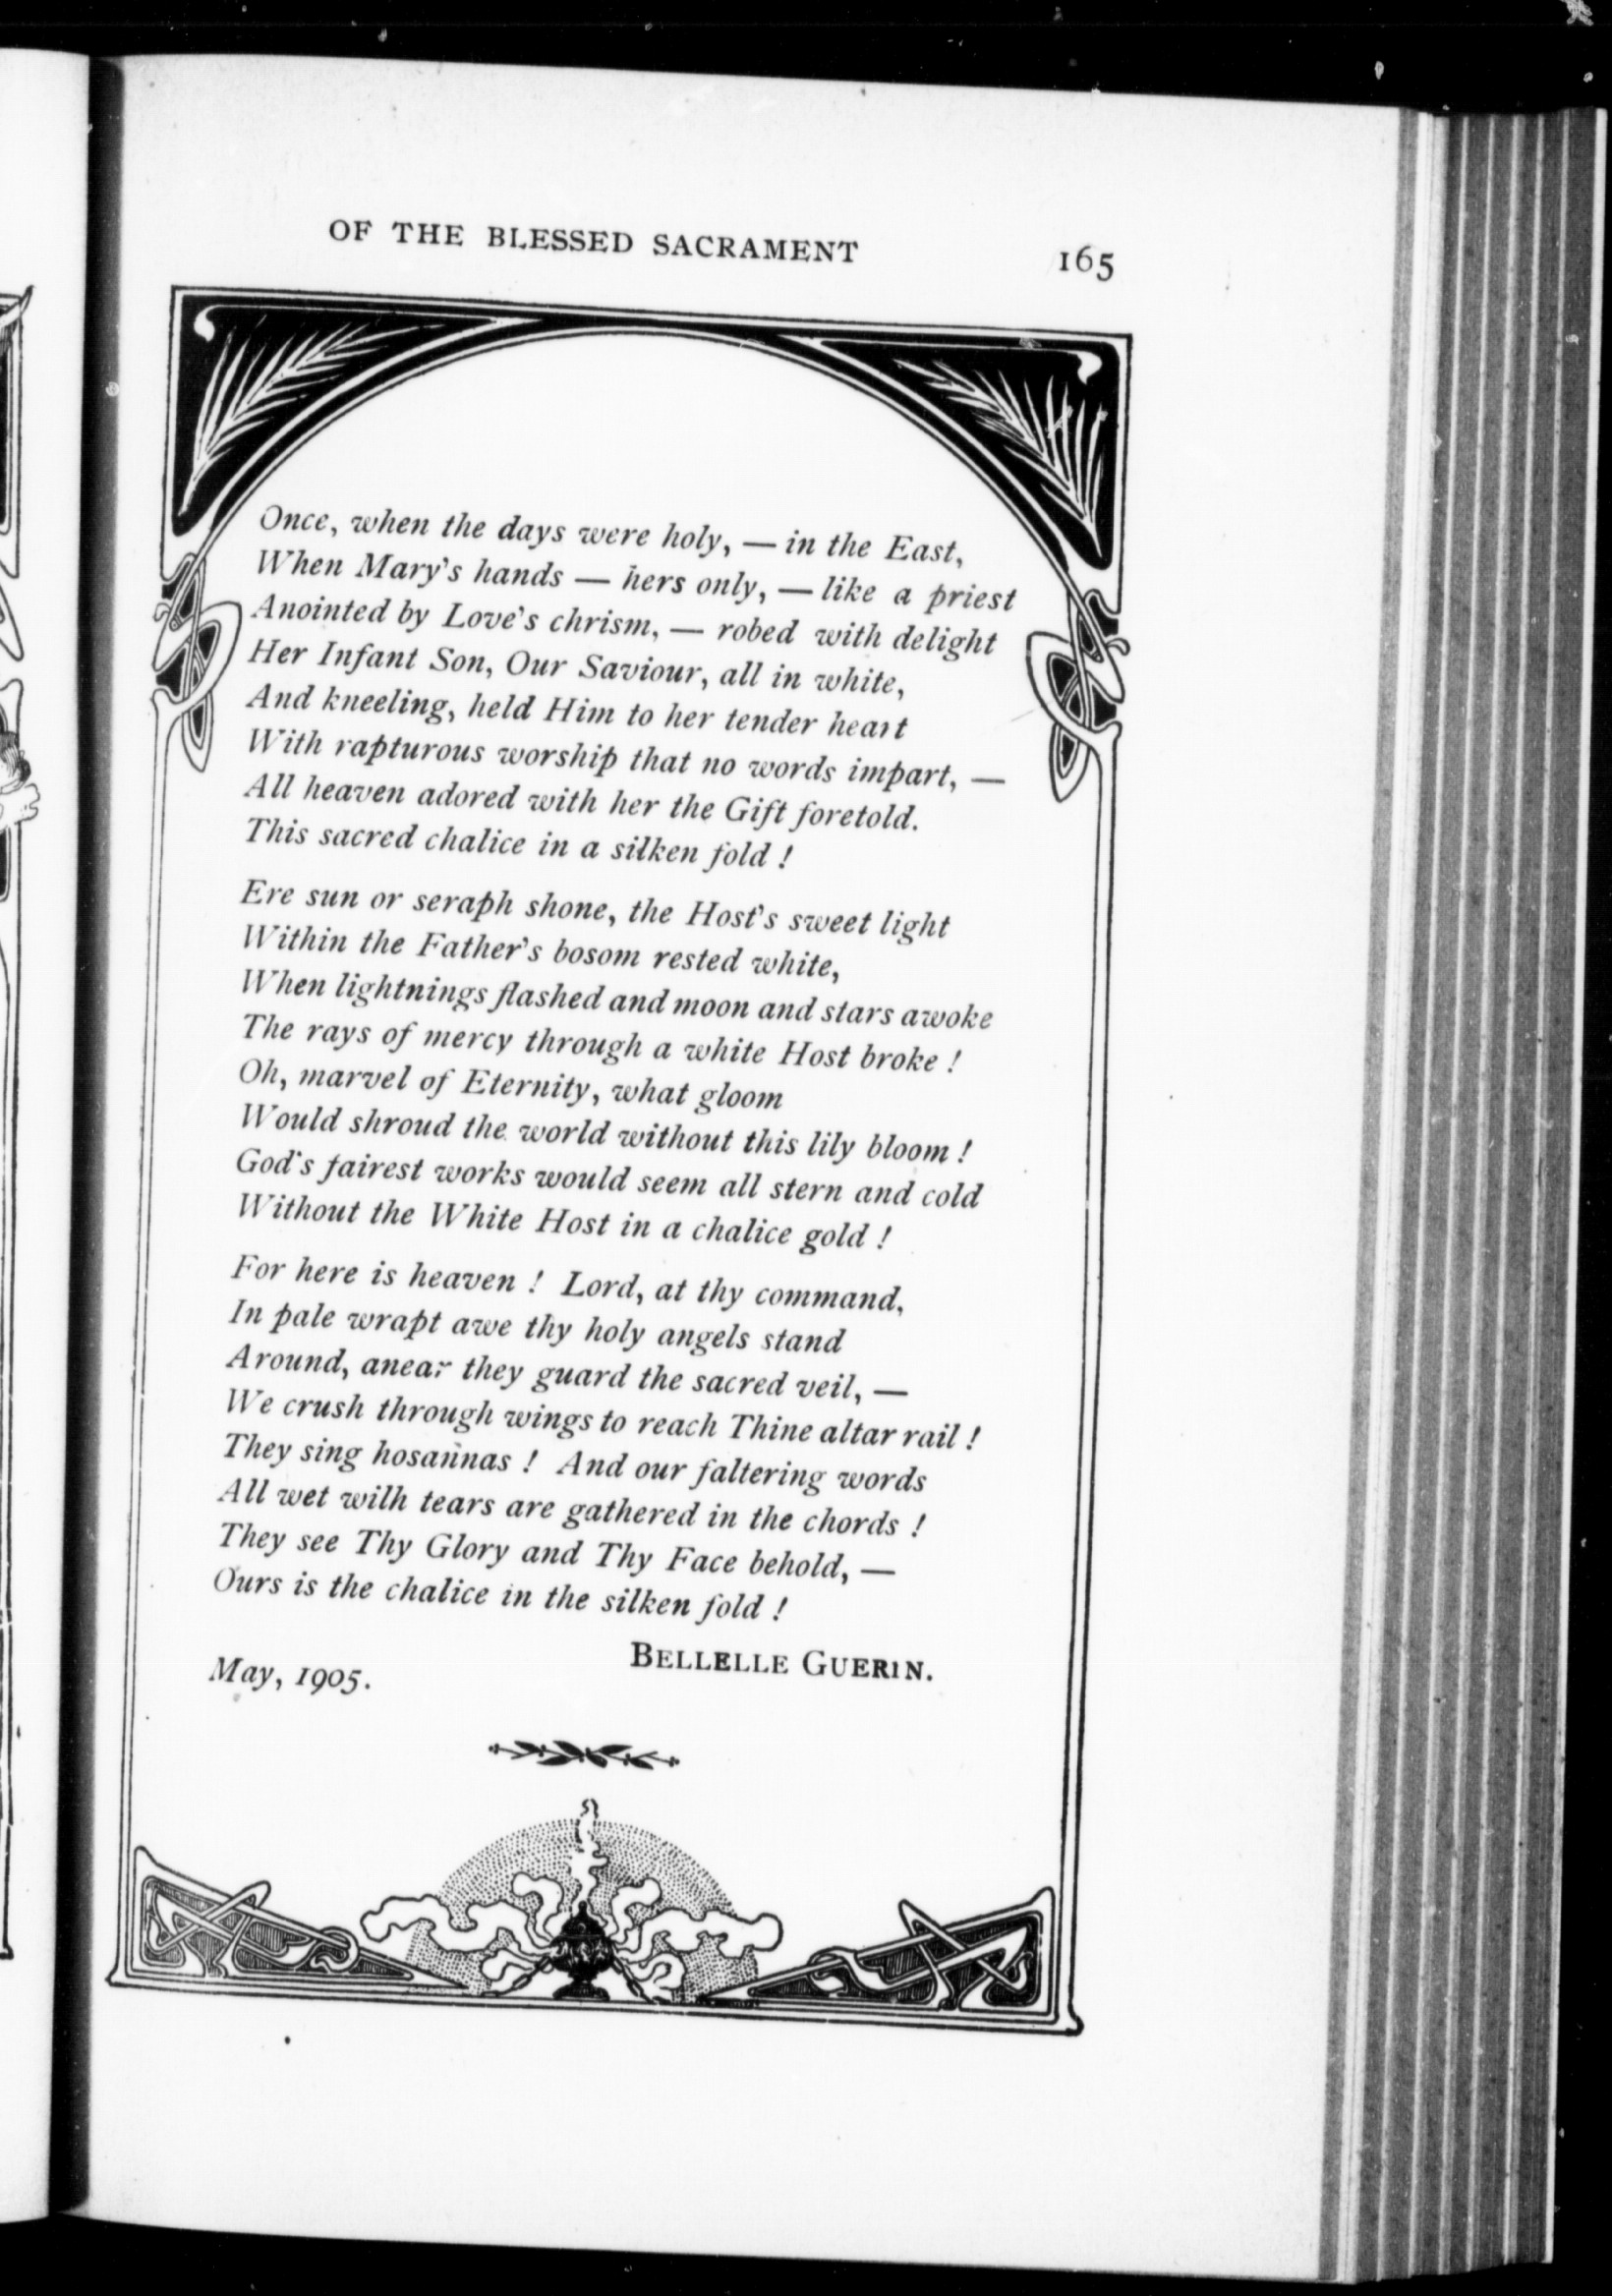 OF THE BLESSED SACRAMENT 165
Once, when the days were holy, — in the East,
When Mary's hands — hers only, — like a priest
Anointed by Love's chrism, — robed with delight
Her Infant Son, Our Saviour, all in white,
And kneeling, held Him to her tender heart
With rapturous worship that no words impart, —
All heaven adored with her the Gift foretold.
This sacred chalice in a silken fold !
Ere sun or seraph shone, the Host's sweet light
Within the Father's bosom rested white,
When lightnings flashed and moon and stars awoke
The rays of mercy through a white Host broke !
Oh, marvel of Eternity, what gloom
Would shroud the world without this lily bloom !
God's fairest works would seem all stern and cold
Without the White Host in a chalice gold !
For here is heaven ! Lord, at thy command,
In pale wrapt awe thy holy angels stand
Around, anear they guard the sacred veil, —
We crush through wings to reach Thine altar rail !
They sing hosannas ! And our faltering words
All wet wilh tears are gathered in the chords !
They see Thy Glory and Thy Face behold, —
Ours is the chalice in the silken fold !
BELLELLE GUERIN.
May, 1905.